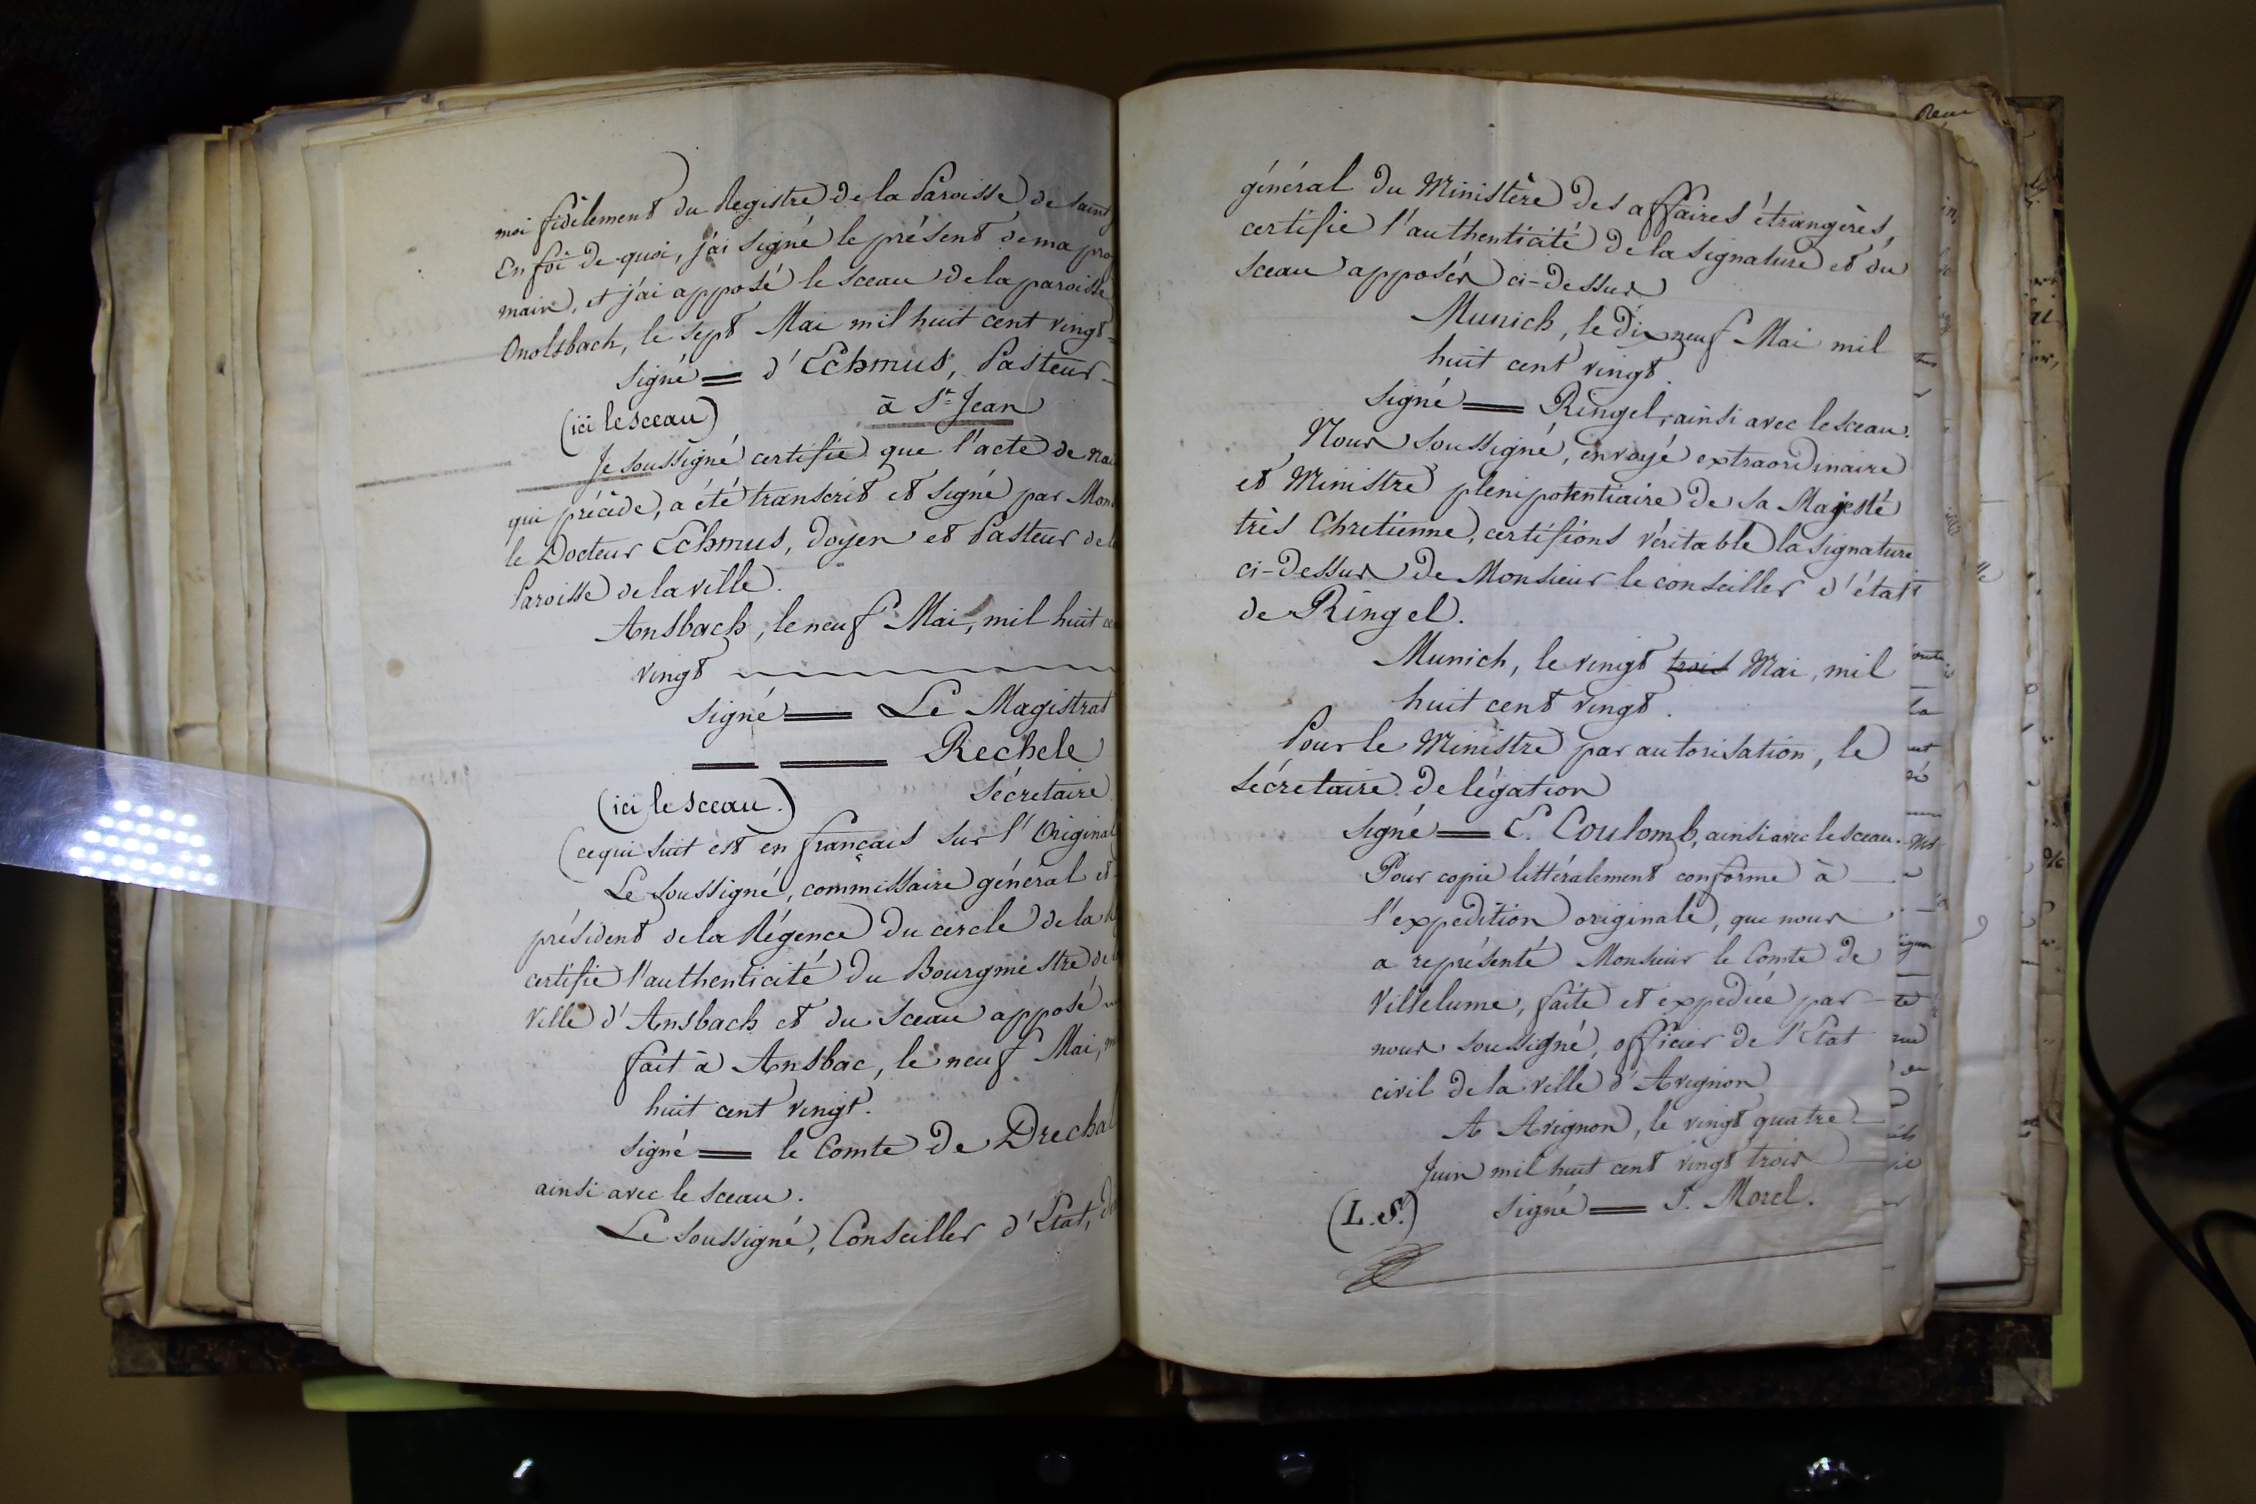 moi fidèlement du Registre de la Paroisse de Saint
En foi de quoi, j'ai signé le présent de ma pro
main, et j'ai apposé le sceau de la paroisse
Onolsbach, le sept Mai mil huit cent vingt
signé = d'Echmus, Pasteur
à St Jean
(ici le sceau)
Je soussigné certifie que l'acte de nai
qui précède, a été transcrit et signé par Mon
le Docteur Echmus, doyen et Pasteur de l
Paroisse de la ville.
Ansbach, le neuf Mai, mil huit ce
vingt
signé = Le Magistrat
Rechele
Sécretaire
(ici le sceau.)
(ce qui suit est en français sur l'Original
Le soussigné, commissaire général et
président de la Régence du cercle de la
certifie l'authenticité du Bourgmestre de
Ville d'Ansbach et du Sceau apposé
fait à Ansbac, le neuf Mai, m
huit cent vingt.
signé = le Comte de Drechal
ainsi avec le sceau.
Le soussigné, Conseiller d'Etat,
général du Ministère des affaires étrangères,
certifie l'authenticité de la signature et du
sceau apposés ci-dessus
Munich, le dix neuf Mai mil
huit cent vingt.
signé = Ringel, ainsi avec le sceau.
Nous soussigné, envoyé extraordinaire
et Ministre plenipotentiaire de Sa Majesté
très Chretienne, certifions véritable la signature
ci-dessus de Monsieur le conseiller d'état
de Ringel.
Munich, le vingt trois Mai, mil
huit cent vingt.
Pour le Ministre par autorisation, le
Sécretaire de légation
signé = E. Coulomb, ainsi avec le sceau.
Pour copie littéralement conforme à
l'expedition originale, que nous
a représenté Monsieur le Comte de
Villelume, faite et expediée par
nous soussigné, officier de l'Etat
civil de la ville d'Avignon
A Avignon, le vingt quatre
Juin mil huit cent vingt trois
(L.S.) signé = S. Morel.